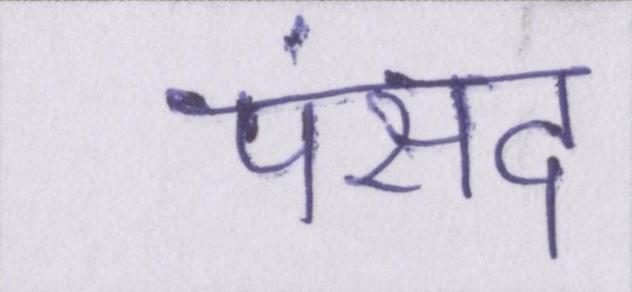 पंसद